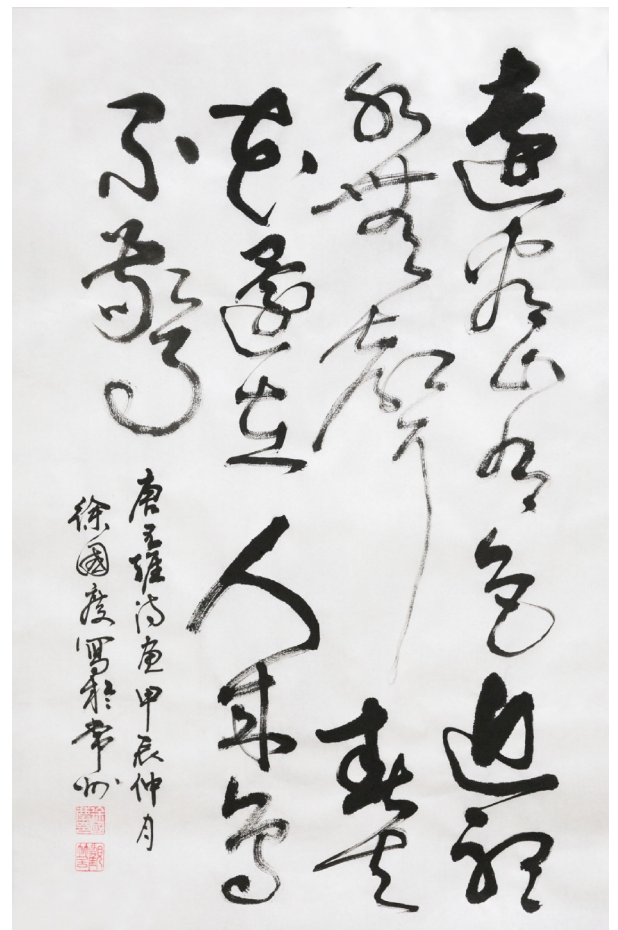 遠看山有色近聽
水無聲春去
花還在人來鳥
不驚
唐王維詩畫甲辰仲月
徐國度寫於常州